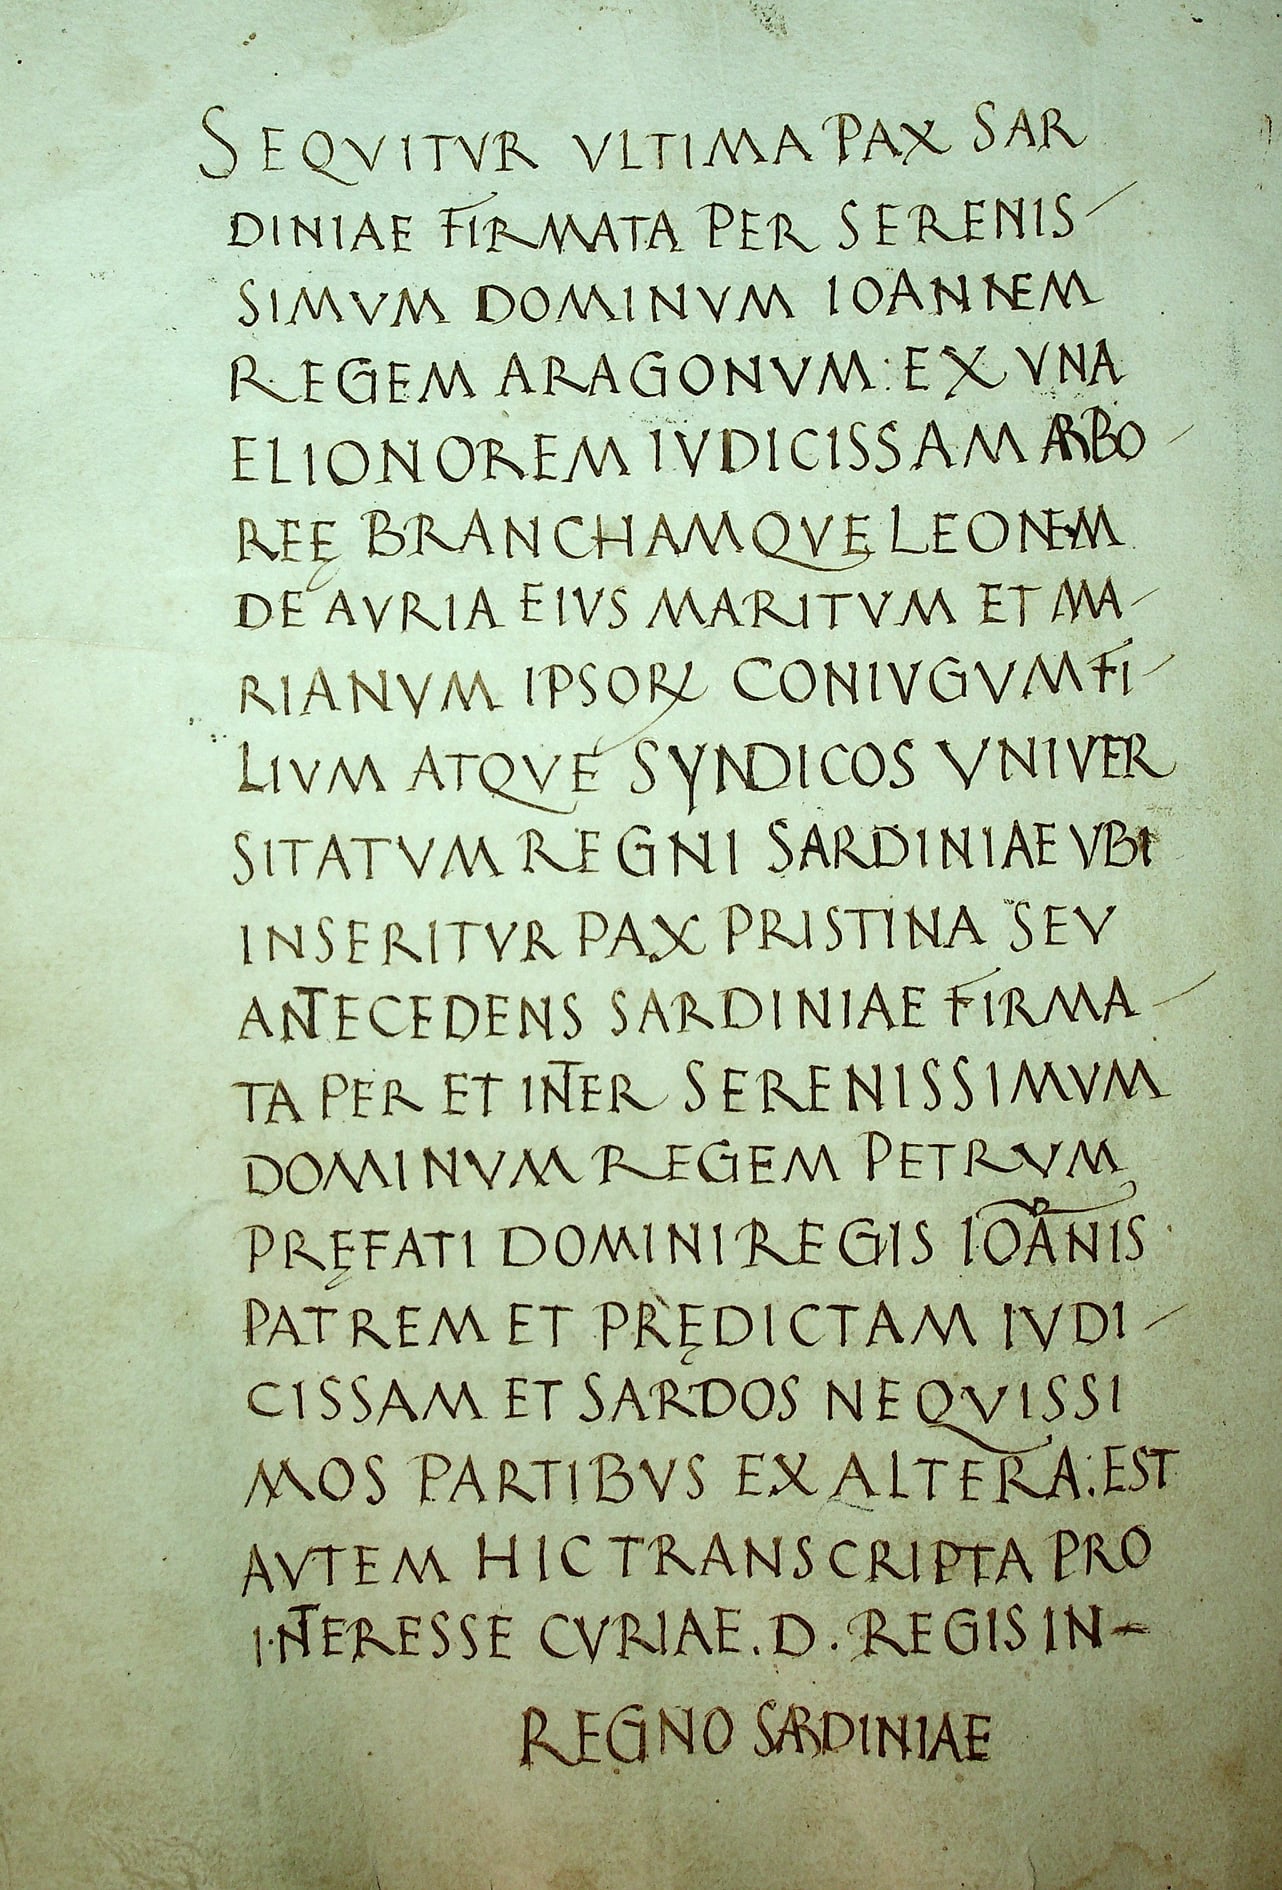 SEQVITVR VLTIMA PAX SAR
DINIAE FIRMATA PER SERENIS
SIMVM DOMINVM IOANNEM
REGEM ARAGONVM: EX VNA
ELIONOREM IVDICISSAM ARBO
REĘ BRANCHAMQVE LEONEM
DE AVRIA EIVS MARITVM ET MA
RIANVM IPSOꝜ CONIVGVM FI
LIVM ATQVE SYNDICOS VNIVER
SITATVM REGNI SARDINIAE VBI
INSERITVR PAX PRISTINA SEV
ANTECEDENS SARDINIAE FIRMA
TA PER ET INTER SERENISSIMVM
DOMINVM REGEM PETRVM
PRĘFATI DOMINI REGIS IOĀNIS
PATREM ET PRĘDICTAM IVDI
CISSAM ET SARDOS NEQVISSI
MOS PARTIBVS EX ALTERA: EST
AVTEM HIC TRANSCRIPTA PRO
INTERESSE CVRIAE. D. REGIS IN-
REGNO SARDINIAE